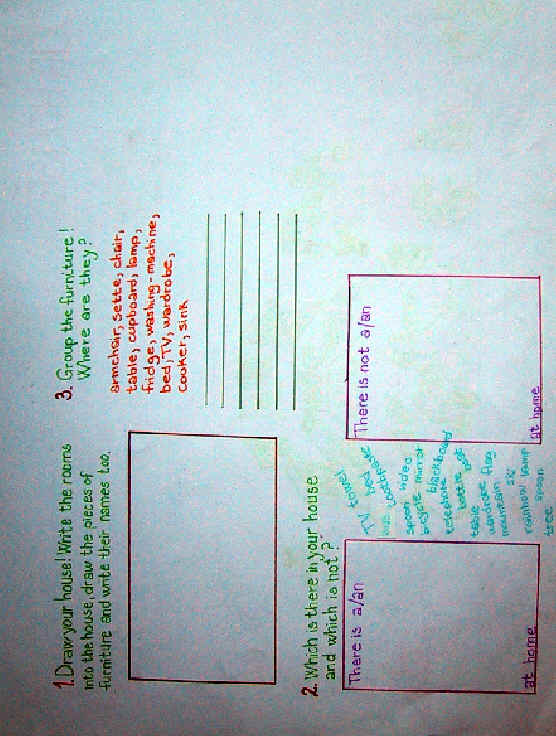 1. Draw your house! Write the rooms
into the house, draw the pieces of
furniture and write their names too.
2. Which is there in your house
and which is not?
There is a/an
at home
towel
TV bed
bus
spoon video
bicycle
blackboard
table
wardrobe flag
mountain
lamp
spoon
tree
There is not a/an
at home
3. Group the furniture!
Where are they?
armchair, settee, chair,
table, cupboard, lamp,
fridge, washing-machine,
bed, TV, wardrobe,
cooker, sink